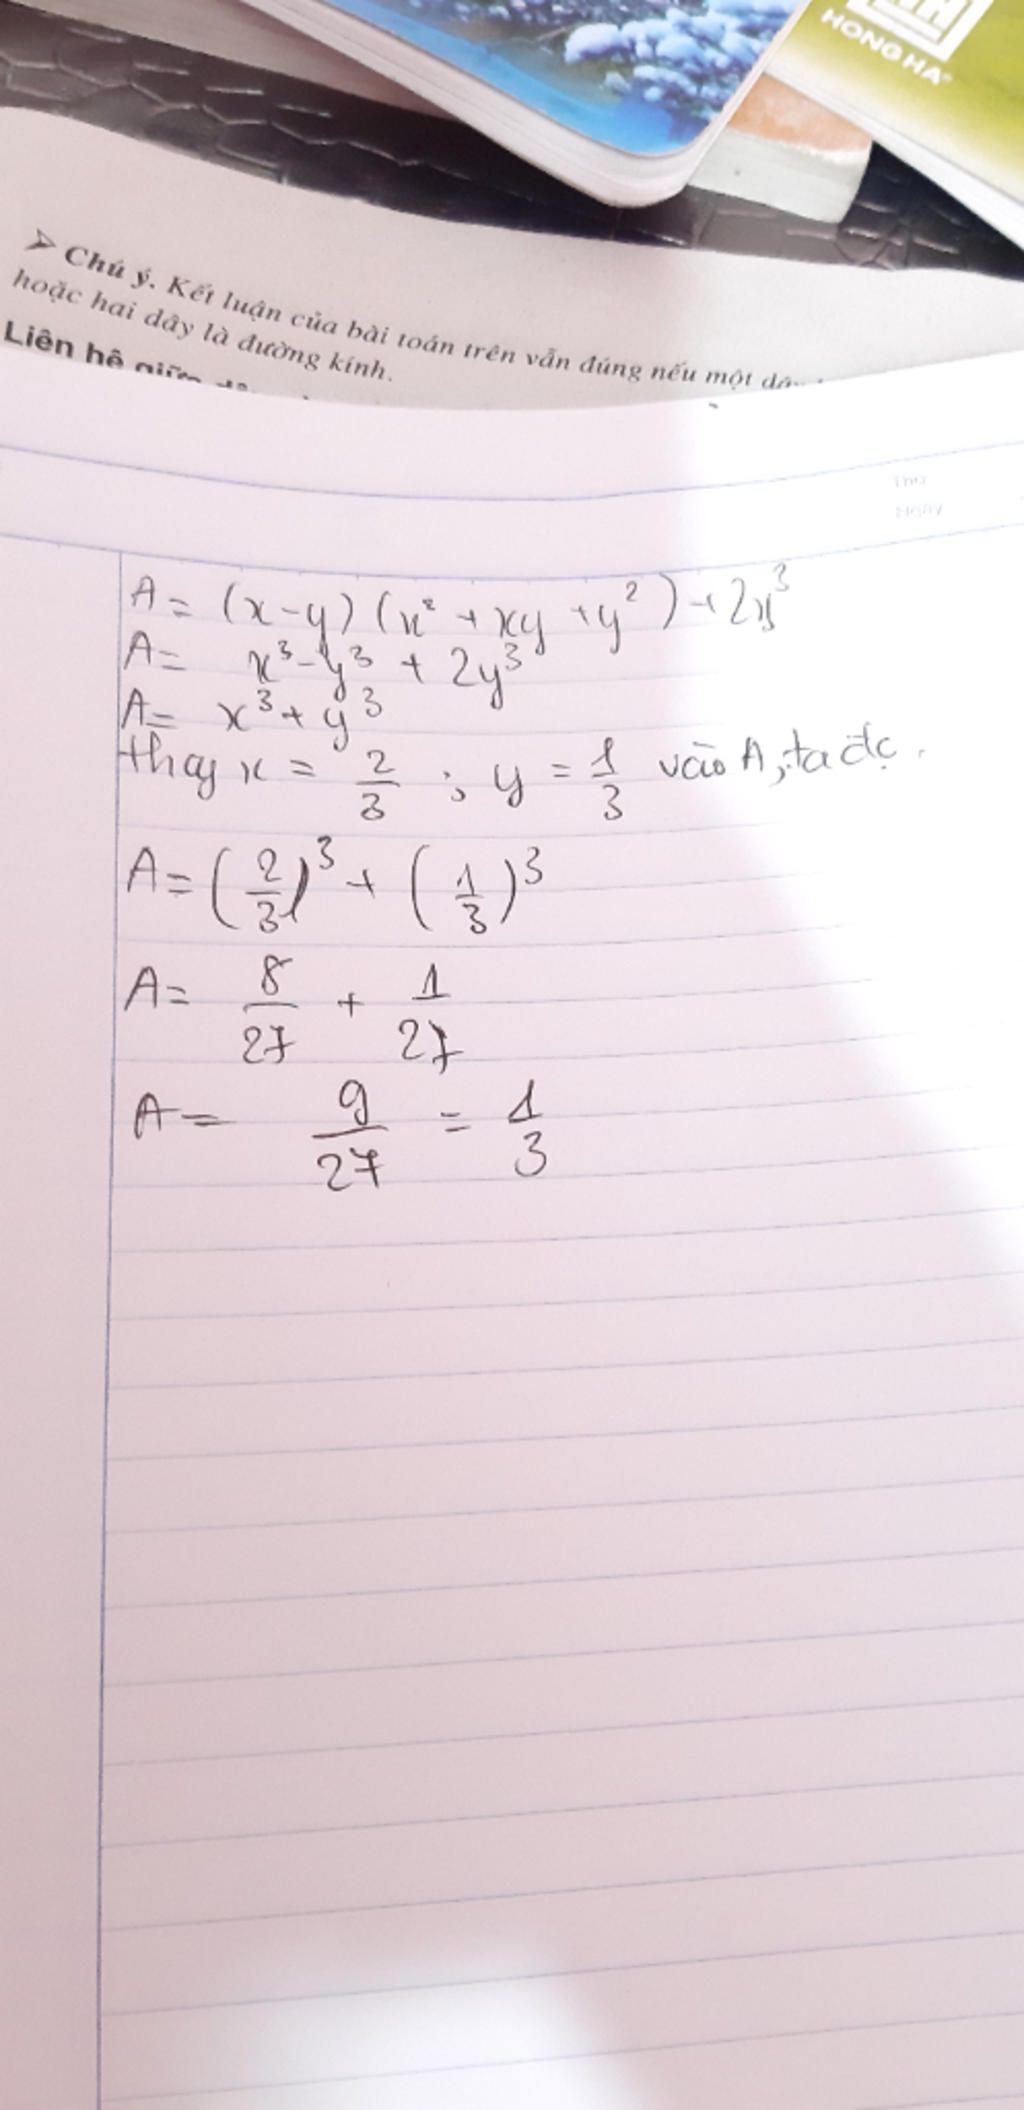 HONG HA
➤ Chú ý. Kết luận của bài toán trên vẫn đúng nếu một
hoặc hai dây là đường kính.
Liên hệ giữa
Thứ
Ngày
A = (x-y)(x² + xy + y²) + 2y³
A = x³ - y³ + 2y³
A = x³ + y³
thay x = 2/3 ; y = 1/3 vào A, ta đc
A = (2/3)³ + (1/3)³
A = 8/27 + 1/27
A = 9/27 = 1/3